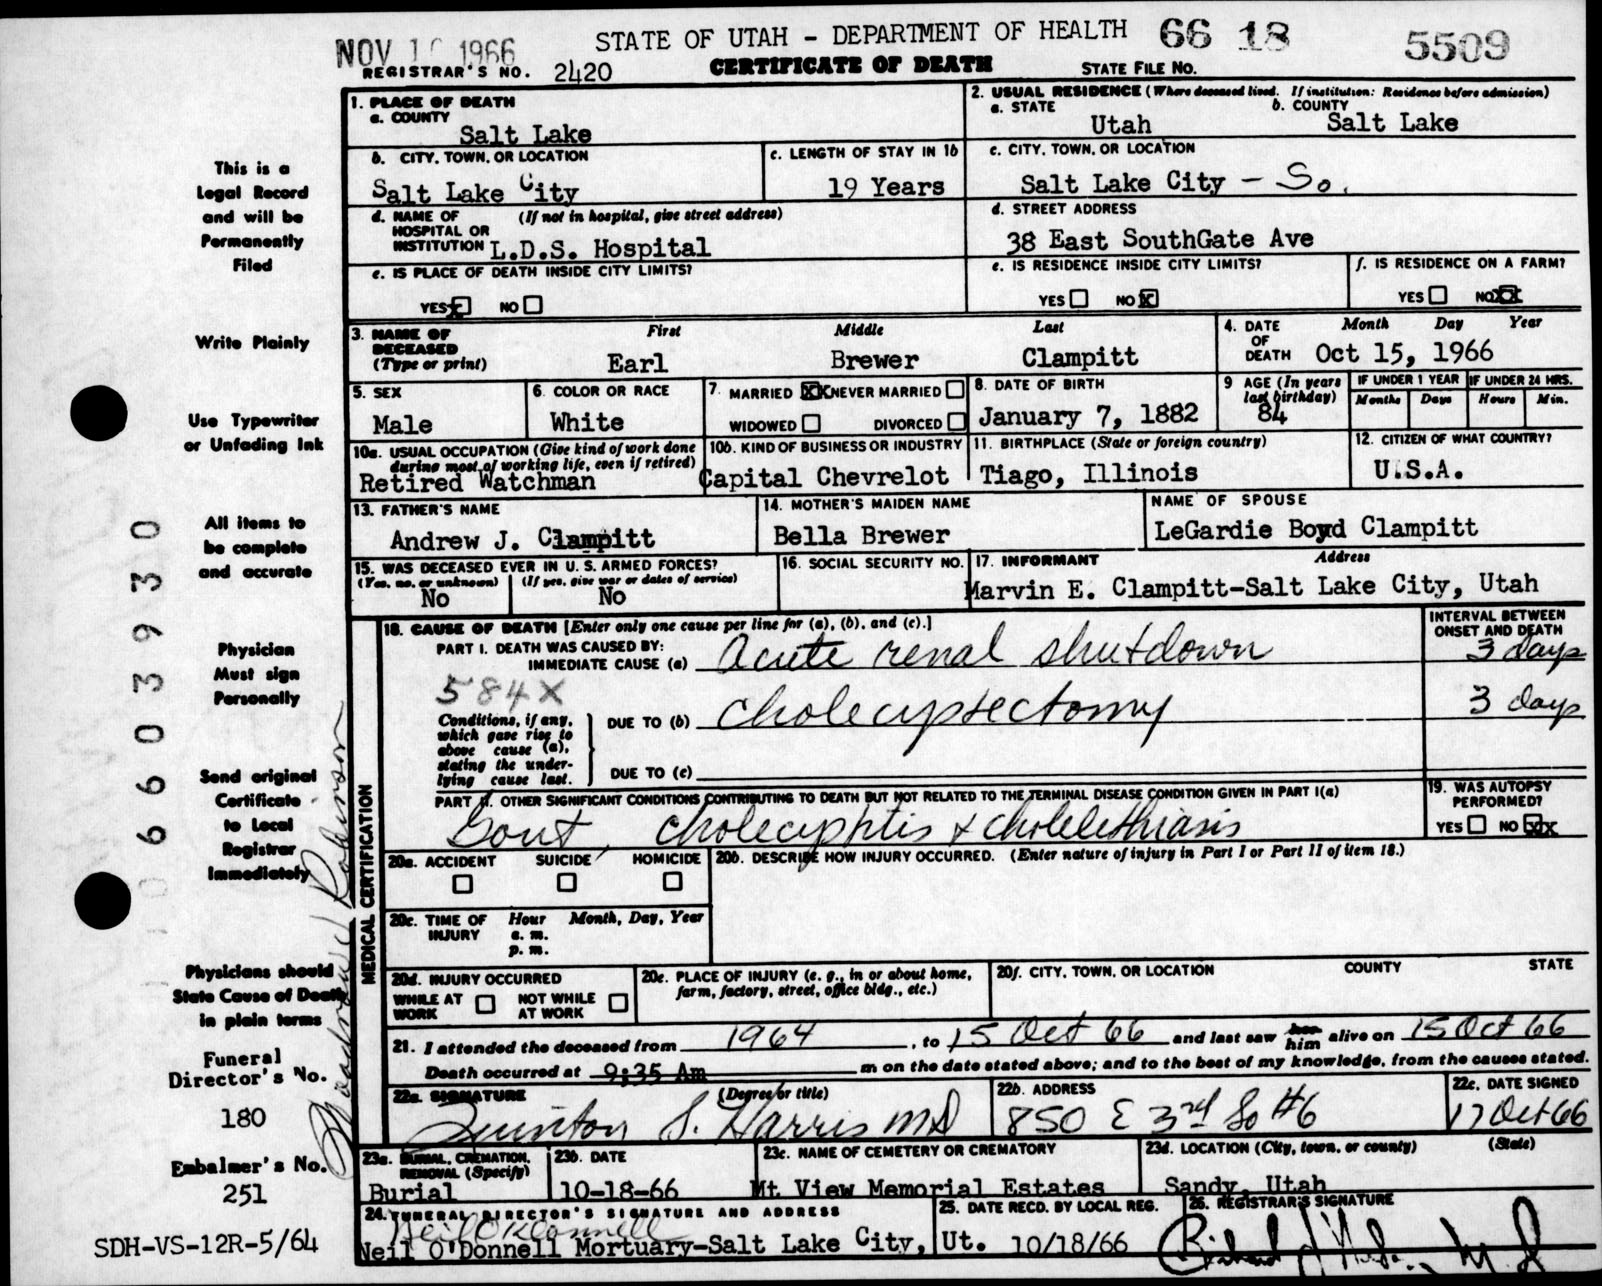 NOV 1 1966 STATE OF UTAH - DEPARTMENT OF HEALTH 66 18 5509
REGISTRAR'S NO. 2420 CERTIFICATE OF DEATH STATE FILE NO.
1. PLACE OF DEATH
a. COUNTY
Salt Lake
2. USUAL RESIDENCE (Where deceased lived. If institution: Residence before admission)
a. STATE b. COUNTY
Utah Salt Lake
b. CITY, TOWN, OR LOCATION
Salt Lake City
c. LENGTH OF STAY IN 1b
19 Years
c. CITY, TOWN, OR LOCATION
Salt Lake City - So.
d. NAME OF (If not in hospital, give street address)
HOSPITAL OR
INSTITUTION L.D.S. Hospital
d. STREET ADDRESS
38 East SouthGate Ave
e. IS PLACE OF DEATH INSIDE CITY LIMITS?
YES X NO
e. IS RESIDENCE INSIDE CITY LIMITS?
YES NO X
f. IS RESIDENCE ON A FARM?
YES NO XX
3. NAME OF First Middle Last
DECEASED
(Type or print) Earl Brewer Clampitt
4. DATE Month Day Year
OF
DEATH Oct 15, 1966
5. SEX
Male
6. COLOR OR RACE
White
7. MARRIED XX NEVER MARRIED
WIDOWED DIVORCED
8. DATE OF BIRTH
January 7, 1882
9 AGE (In years
last birthday)
84
IF UNDER 1 YEAR IF UNDER 24 HRS.
Months Days Hours Min.
10a. USUAL OCCUPATION (Give kind of work done
during most of working life, even if retired)
Retired Watchman
10b. KIND OF BUSINESS OR INDUSTRY
Capital Chevrelot
11. BIRTHPLACE (State or foreign country)
Tiago, Illinois
12. CITIZEN OF WHAT COUNTRY?
U.S.A.
13. FATHER'S NAME
Andrew J. Clampitt
14. MOTHER'S MAIDEN NAME
Bella Brewer
NAME OF SPOUSE
LeGardie Boyd Clampitt
15. WAS DECEASED EVER IN U. S. ARMED FORCES?
(Yes, no, or unknown) (If yes, give war or dates of service)
No No
16. SOCIAL SECURITY NO.
17. INFORMANT Address
Marvin E. Clampitt-Salt Lake City, Utah
18. CAUSE OF DEATH [Enter only one cause per line for (a), (b), and (c).]
INTERVAL BETWEEN
ONSET AND DEATH
PART I. DEATH WAS CAUSED BY:
IMMEDIATE CAUSE (a) Acute renal shutdown 3 days
584X
Conditions, if any,
which gave rise to
above cause (a),
stating the under-
lying cause last.
DUE TO (b) Cholecystectomy 3 days
DUE TO (c)
PART II. OTHER SIGNIFICANT CONDITIONS CONTRIBUTING TO DEATH BUT NOT RELATED TO THE TERMINAL DISEASE CONDITION GIVEN IN PART I(a)
Gout,
19. WAS AUTOPSY
PERFORMED?
YES NO XX
20a. ACCIDENT SUICIDE HOMICIDE
20b. DESCRIBE HOW INJURY OCCURRED. (Enter nature of injury in Part I or Part II of item 18.)
20c. TIME OF Hour Month, Day, Year
INJURY a. m.
p. m.
20d. INJURY OCCURRED
WHILE AT NOT WHILE
WORK AT WORK
20e. PLACE OF INJURY (e. g., in or about home,
farm, factory, street, office bldg., etc.)
20f. CITY, TOWN, OR LOCATION COUNTY STATE
21. I attended the deceased from 1964, to 15 Oct 66 and last saw her him alive on 15 Oct 66
Death occurred at 9:35 Am m on the date stated above; and to the best of my knowledge, from the causes stated.
22a. SIGNATURE (Degree or title)
Quinton S. Harris MD
22b. ADDRESS
850 E 3rd So #6
22c. DATE SIGNED
17 Oct 66
23a. BURIAL, CREMATION,
REMOVAL (Specify)
Burial
23b. DATE
10-18-66
23c. NAME OF CEMETERY OR CREMATORY
Mt View Memorial Estates
23d. LOCATION (City, town, or county) (State)
Sandy, Utah
24. FUNERAL DIRECTOR'S SIGNATURE AND ADDRESS
Neil O'Donnell
Neil O'Donnell Mortuary-Salt Lake City, Ut.
25. DATE RECD. BY LOCAL REG.
10/18/66
26. REGISTRAR'S SIGNATURE
MEDICAL CERTIFICATION
This is a
Legal Record
and will be
Permanently
Filed
Write Plainly
Use Typewriter
or Unfading Ink
All items to
be complete
and accurate
Physician
Must sign
Personally
Send original
Certificate
to Local
Registrar
Immediately
Physicians should
State Cause of Death
in plain terms
Funeral
Director's No.
180
Embalmer's No.
251
SDH-VS-12R-5/64
Robinson
06603930